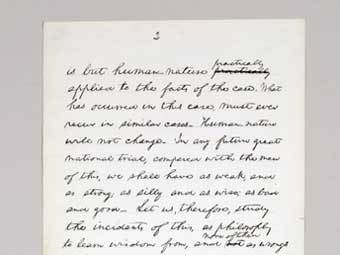 3
practically
is but human-nature practically
applied to the facts of the case. What
has occurred in this case, must ever
recur in similar cases. Human-nature
will not change. In any future great
national trial, compared with the men
of this, we shall have as weak, and
as strong; as silly and as wise; as bad
and good. Let us, therefore, study
the incidents of this, as philosophy
none of them
to learn wisdom from, and not as wrongs